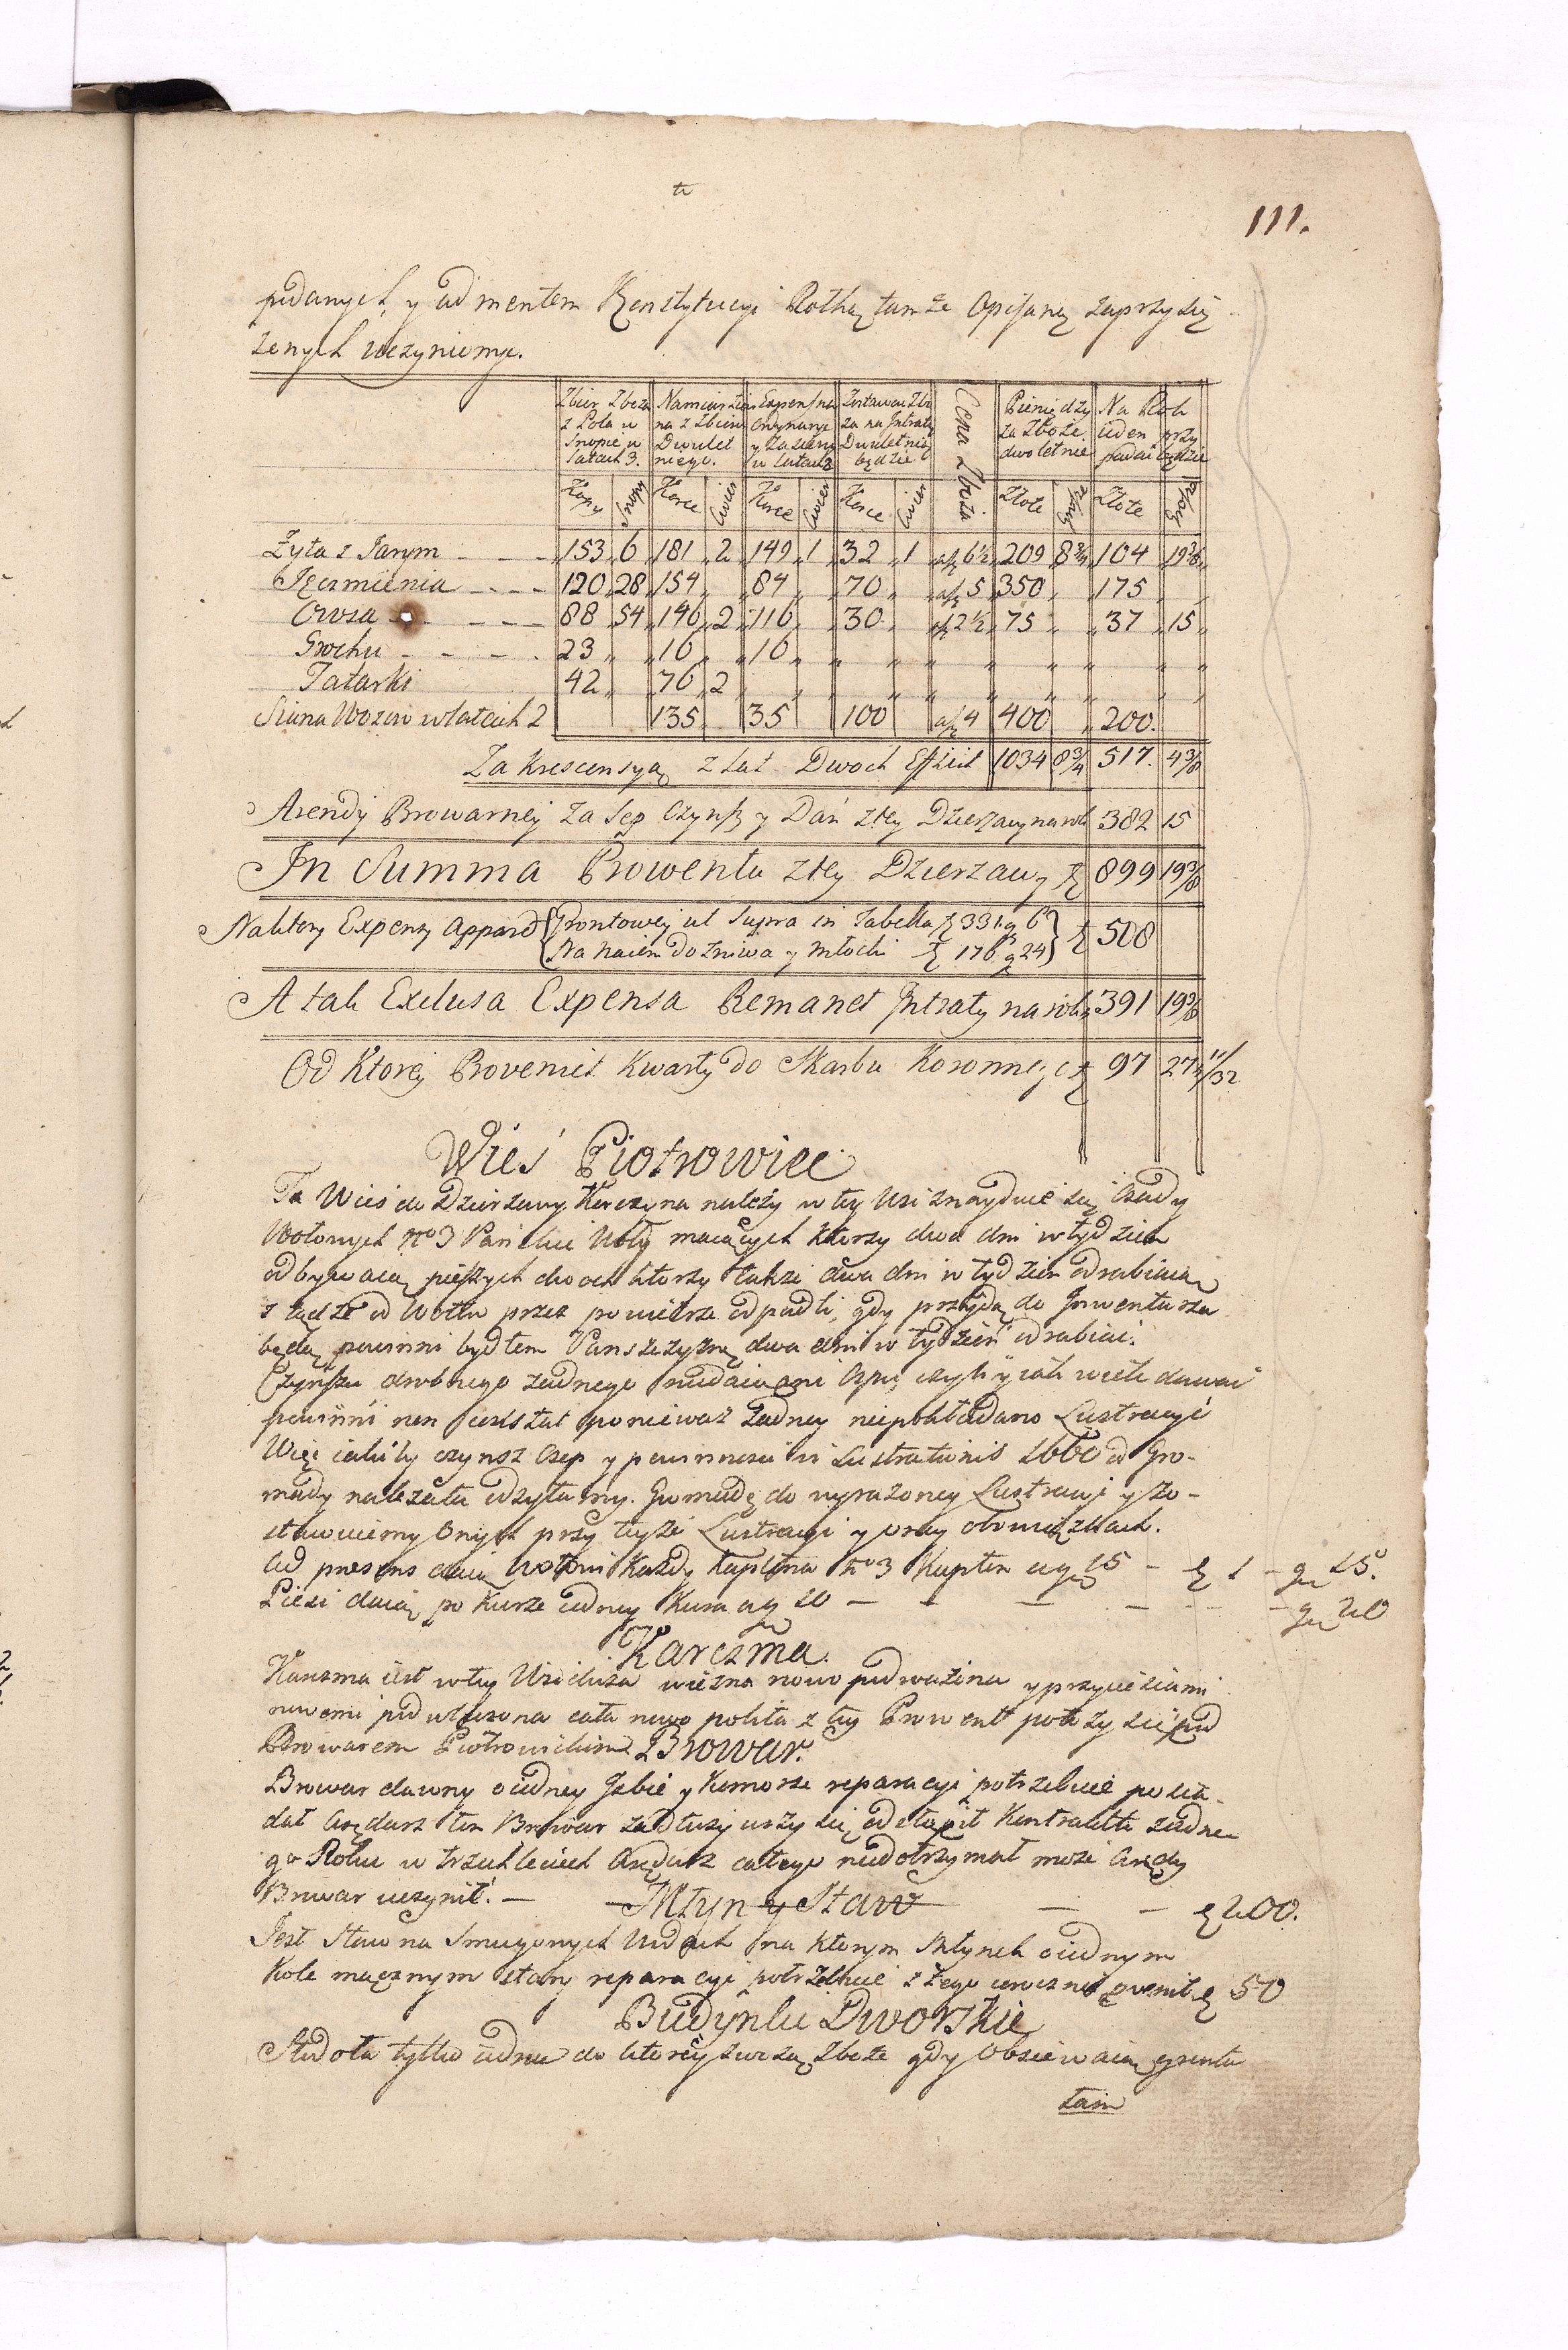 111.
podanych, y ad mentem Konstytucyi Rothą tamże Opisaną zaprzysię
żonych uczyniemy.
Zbior Zboża z Pola w Snopie w Latach 3. | Namiar Ziarna z Zbioru Dwulet niego. | Expens na Ordynarye y Zasiewy w Latach 2 | Zostawać Zboża na Intratę Dwuletnią będzie | Cena Zboża | Pieniędzy za Zboże dwoletnie | Na Rok ieden przypadać będzie
Kopy | Snopy | Korce | Ćwierć | Korce | Ćwierć | Korce | Ćwierć | Złote | Grosze | Złote | Grosze
Żyta z Jarym - - - 153 | 6 | 181 | 2 | 149 | 1 | 32 | 1 | af 6½ | 209 | 8¾ | 104 | 19⅜
Jęczmienia - - - 120 | 28 | 154 | 84 | 70 | af 5 | 350 | 175
Owsa - - - 88 | 54 | 146 | 2 | 116 | 30 | af 2½ | 75 | 37 | 15
Grochu - - - 23 | 16 | 16
Tatarki 42 | 76 | 2
Siana Wozów w latach 2 135 | 35 | 100 | af 4 | 400 | 200.
Za Krescensyą z Lat Dwoch Efficit 1034 | 8¾ | 517. | 4⅜
Arendy Browarney za Sep Czynsz y Dań z tey Dzierzawy na rok 382 | 15
In Summa Prowentu z tey Dzierzawy 899 | 19⅜
Na ktory Expensy Appard Grontowey ut Supra in Tabella 331 g 6
Na Naiem do żniwa y młocki 176 g 24 508
A tak Exclusa Expensa Remanet Intraty na rok 391 | 19⅜
Od Ktorey Provenit Kwarty do Skarbu Koronnego 97 | 27 11/32
Wieś Piotrowice
Ta Wieś do Dzierzawy Korczyna należy w tey Wsi znayduie się Osady
Wołowych No 3 Pańskie Woły maiących ktorzy dwa dni w tydzien
odbywaią pieszych dwoch ktorzy także dwa dni w tydzien odrabiaią
ż tędże od Wołu przez powietrze odpadli, gdy przyidą do Inwentarza
będą powinni bydłem Panszczyznę dwa dni w tydzień odrabiać.
Czynszu drobnego żadnego niedaią ani Ospu, czyli y iak wiele dawać
powinni non constat ponieważ żadney niepokładano Lustracyi
Więc iakiby czynsz Osep y powinnosci in Lustrationis 1660 od Gro-
mady należała odsyłamy. Gromadę do wyrażoney Lustracyi y zo-
stawuiemy onych przy teyże Lustracyi y oney obowiązkach.
Ad presens daią Wołowi Każdy Kapłona No 3 Kapłon a g 15 - 1 - g 15.
Piesi daią po Kurze iedney Kura a g 10 - - - - g 20
Karczma.
Karczma iest w tey Wsi nowo podważona y przycieziami
nowemi podwleczona cała nowo pobita z tey Prowent położy się pod
Browarem Piotrowickim Browar.
Browar dawny o iedney Izbie y Komorze reparacyi potrzebuie posia-
dał Arędarz ten Browar zadłużywszy się odstąpił Kontraktu żadne
go Roku w trzech leciech Arędarz całego niedotrzymał może Arędy
Browar uczynić. - - - 200.
Młyn y Staw
Jest Staw na Smugowych Wodach na ktorym Młynek o iednym
Kole mącznym stary reparacyi potrzebuie z tego uroczne evenit 50
Budynki Dworskie
Stodoła tylko iedna do ktorey zwożą zboże gdy Obsiewaią gronta
tam